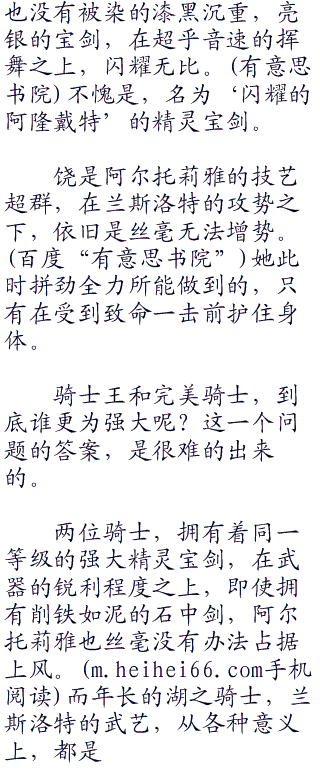 也没有被染的漆黑沉重，亮
银的宝剑，在超乎音速的挥
舞之上，闪耀无比。(有意思
书院)不愧是，名为‘闪耀的
阿隆戴特’的精灵宝剑。
饶是阿尔托莉雅的技艺
超群，在兰斯洛特的攻势之
下，依旧是丝毫无法增势。
(百度“有意思书院”)她此
时拼劲全力所能做到的，只
有在受到致命一击前护住身
体。
骑士王和完美骑士，到
底谁更为强大呢？这一个问
题的答案，是很难的出来
的。
两位骑士，拥有着同一
等级的强大精灵宝剑，在武
器的锐利程度之上，即使拥
有削铁如泥的石中剑，阿尔
托莉雅也丝毫没有办法占据
上风。(m.heihei66.com手机
阅读)而年长的湖之骑士，兰
斯洛特的武艺，从各种意义
上，都是